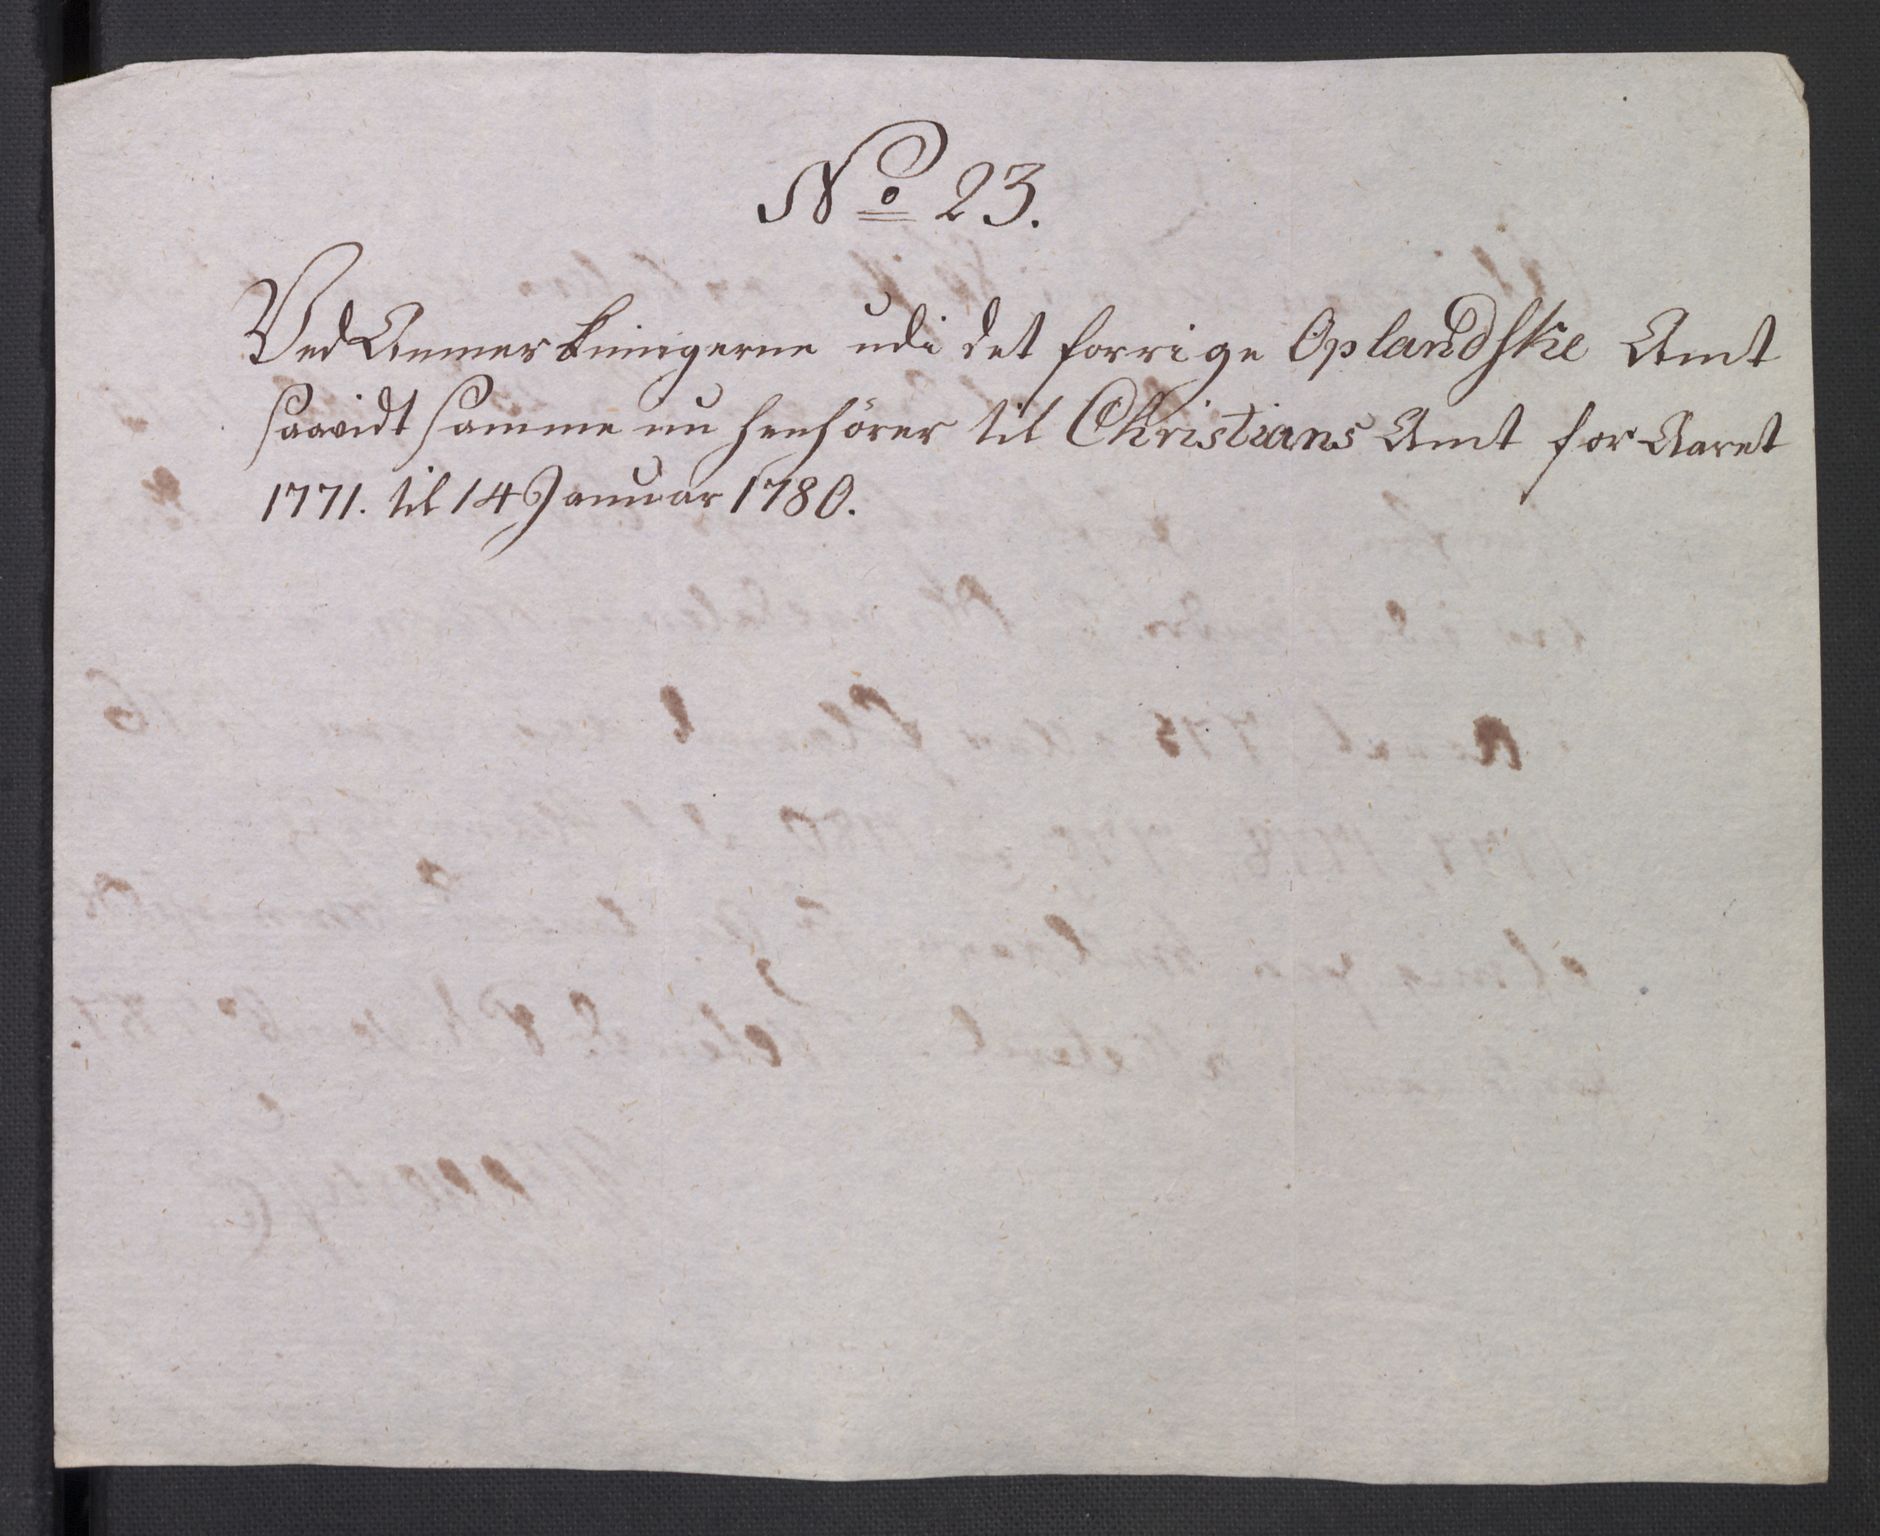 No 23.
Ved Anmerkningerne udi det forrige Oplandske Amt
saavidt samme nu henhörer til Christians Amt for Aaret
1771. til 14 Januar 1780.